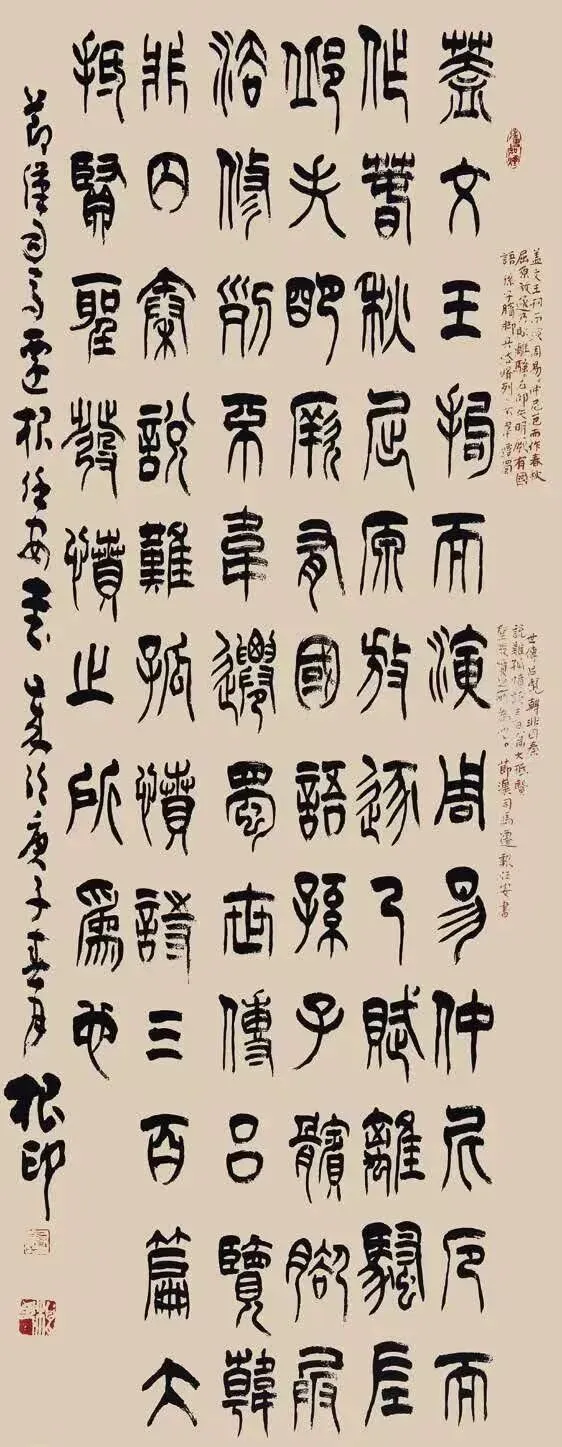 盖文王拘而演周易。仲尼厄而作春秋
屈原放逐乃賦離騷左邱失明厥有國
語孫子臏腳兵法修列不韋遷蜀
世傳呂覽韓非囚秦
説難孤憤詩三百篇大抵賢
聖發憤之所為也。節漢司馬遷報任安書
蓋文王拘而演周易仲尼厄而
作春秋屈原放逐乃賦離騷左
邱失明厥有國語孫子髕腳兵
法修列不韋遷蜀世傳呂覽韓
非囚秦說難孤憤詩三百篇大
抵賢聖發憤之所為也
節漢司馬遷報任安書 歲次庚子春月 根印